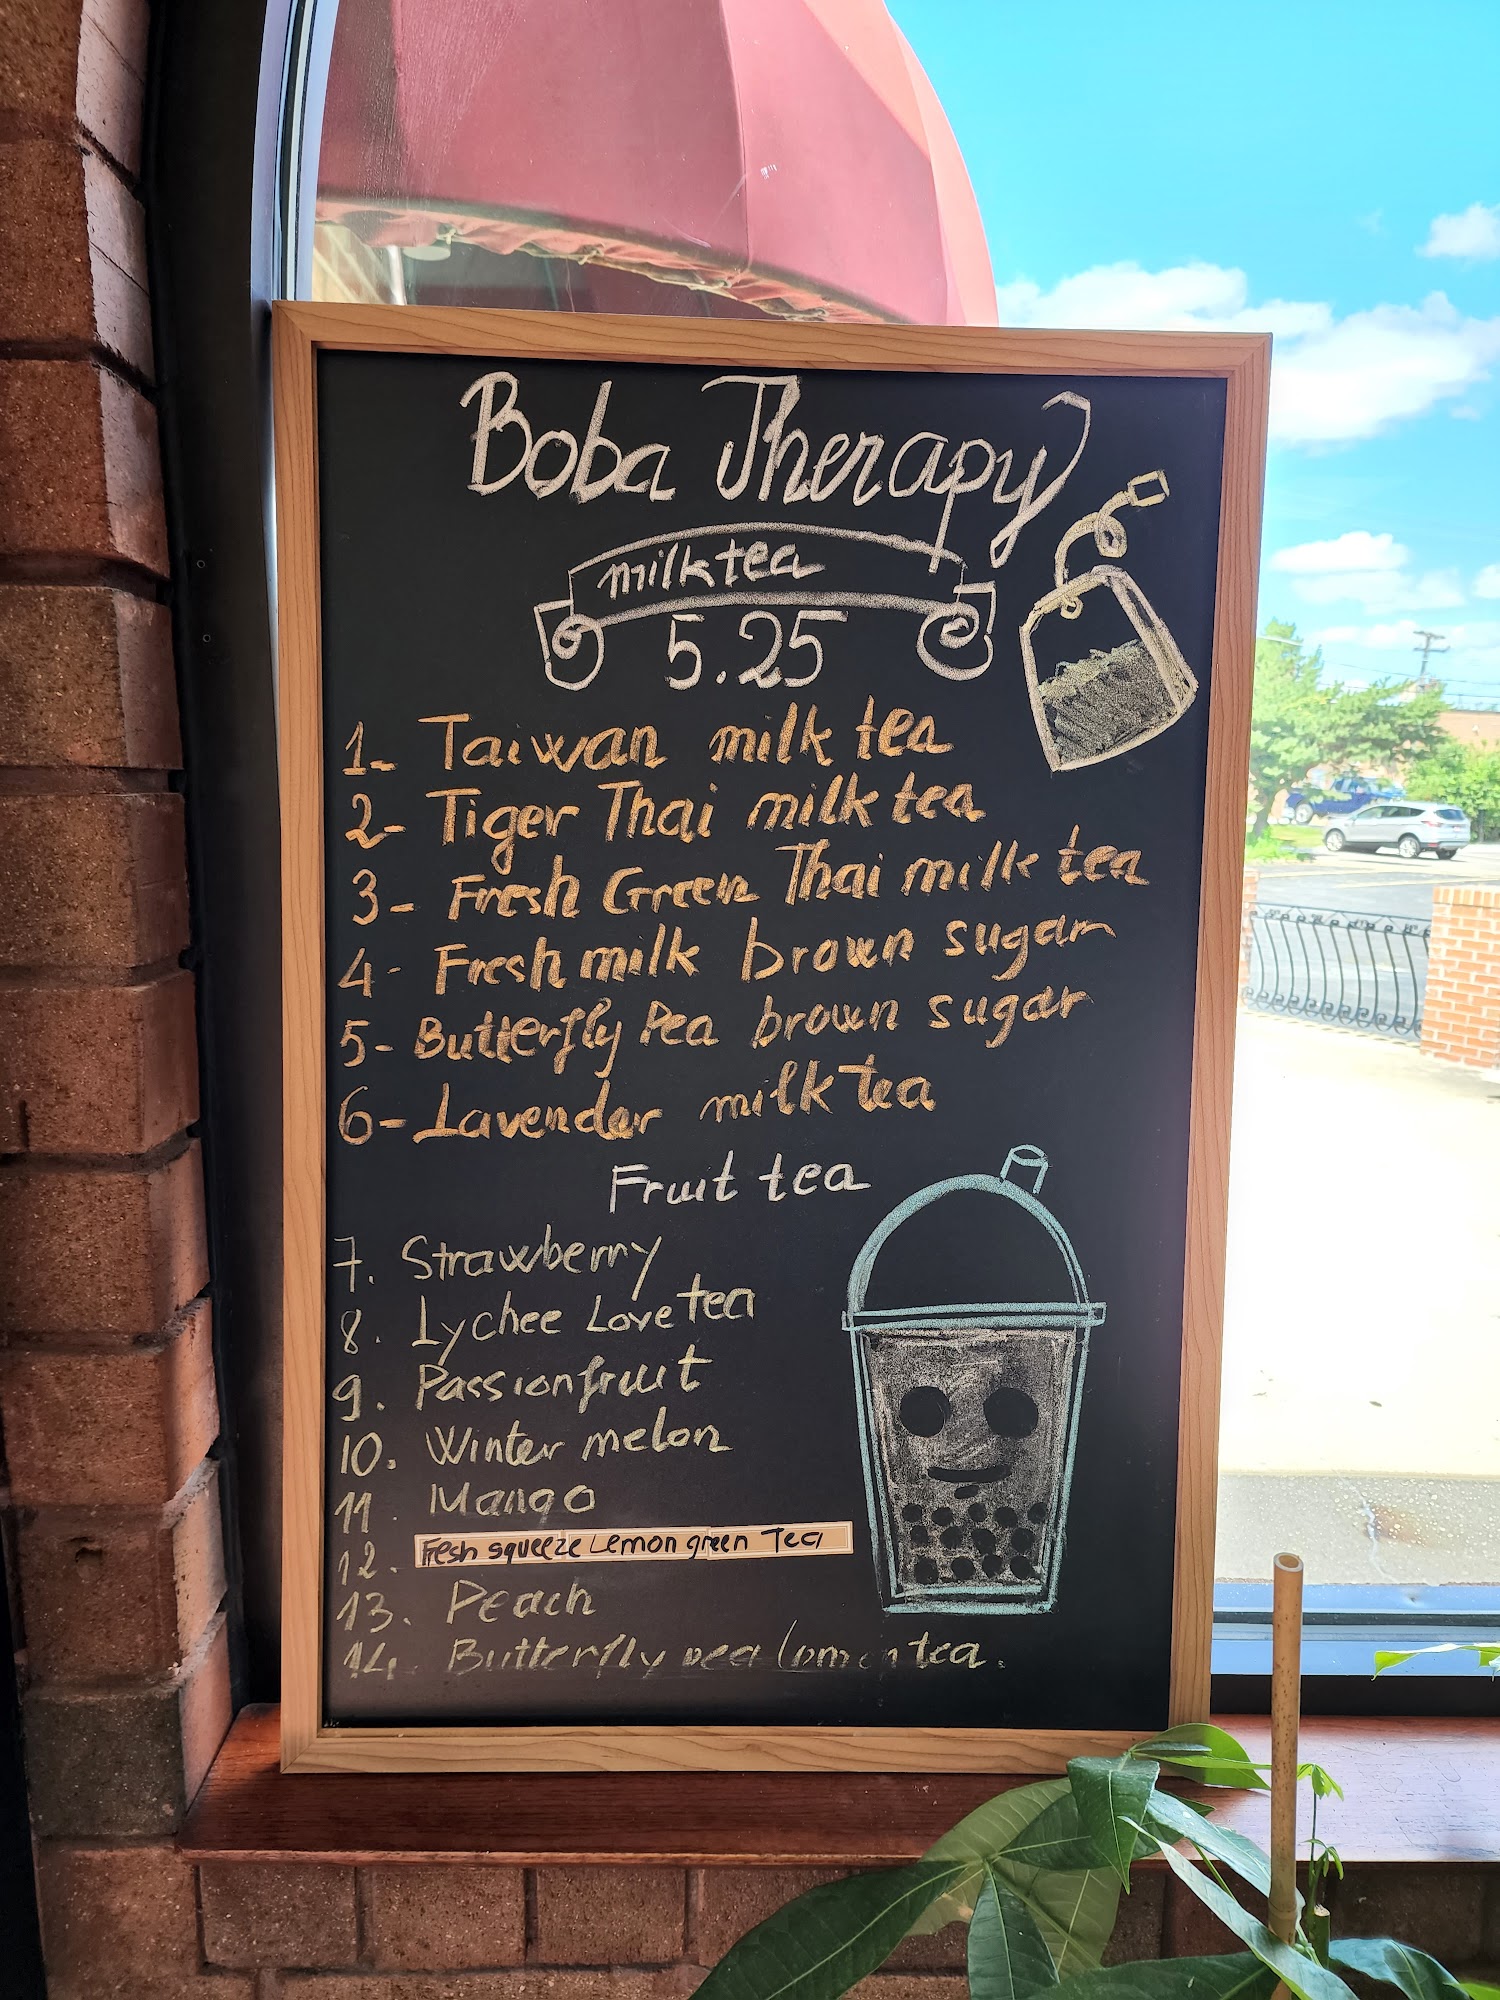 Boba Therapy
milk tea
5.25
1- Taiwan milk tea
2- Tiger Thai milk tea
3- Fresh Green Thai milk tea
4- Fresh milk brown sugar
5- Butterfly Pea brown sugar
6- Lavender milk tea
Fruit tea
7. Strawberry
8. Lychee Love tea
9. Passionfruit
10. Winter melon
11. Mango
12. Fresh squeeze Lemon green Tea
13. Peach
14. Butterfly pea tea.